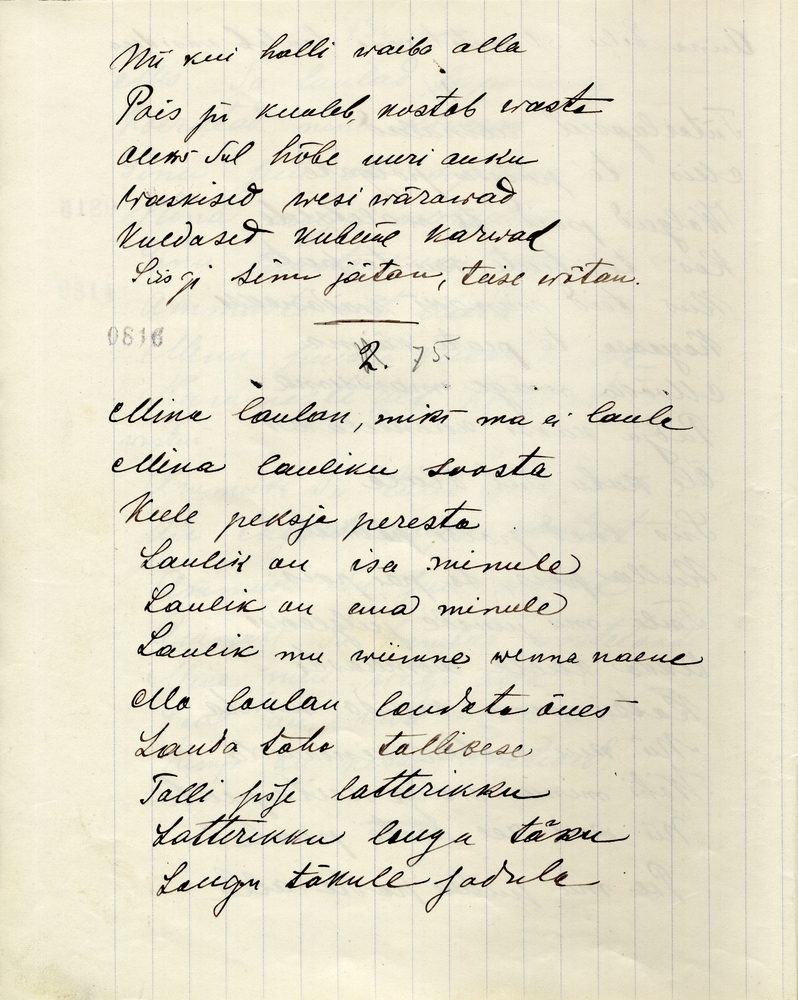 Nii kui halli waiba alla
Pois ju kuuleb, kostab wasta
Oleks sul hõbe uuri auku
Waskised wesi wärawad
Kuldased kubeme karwad
Siis ji sinu jätan, teise wõtan.
0816
2. 75.
Mina laulan, miks ma ei laula
Mina lauliku soosta
Keele peksja peresta
Laulik on isa minule
Laulik on ema minule
Laulik mu wiimne wenna naene
Ma laulan laudata õues
Lauda taha tallisese
Talli sisse latterikku
Latterikku laugu täku
Laugu täkule sadula